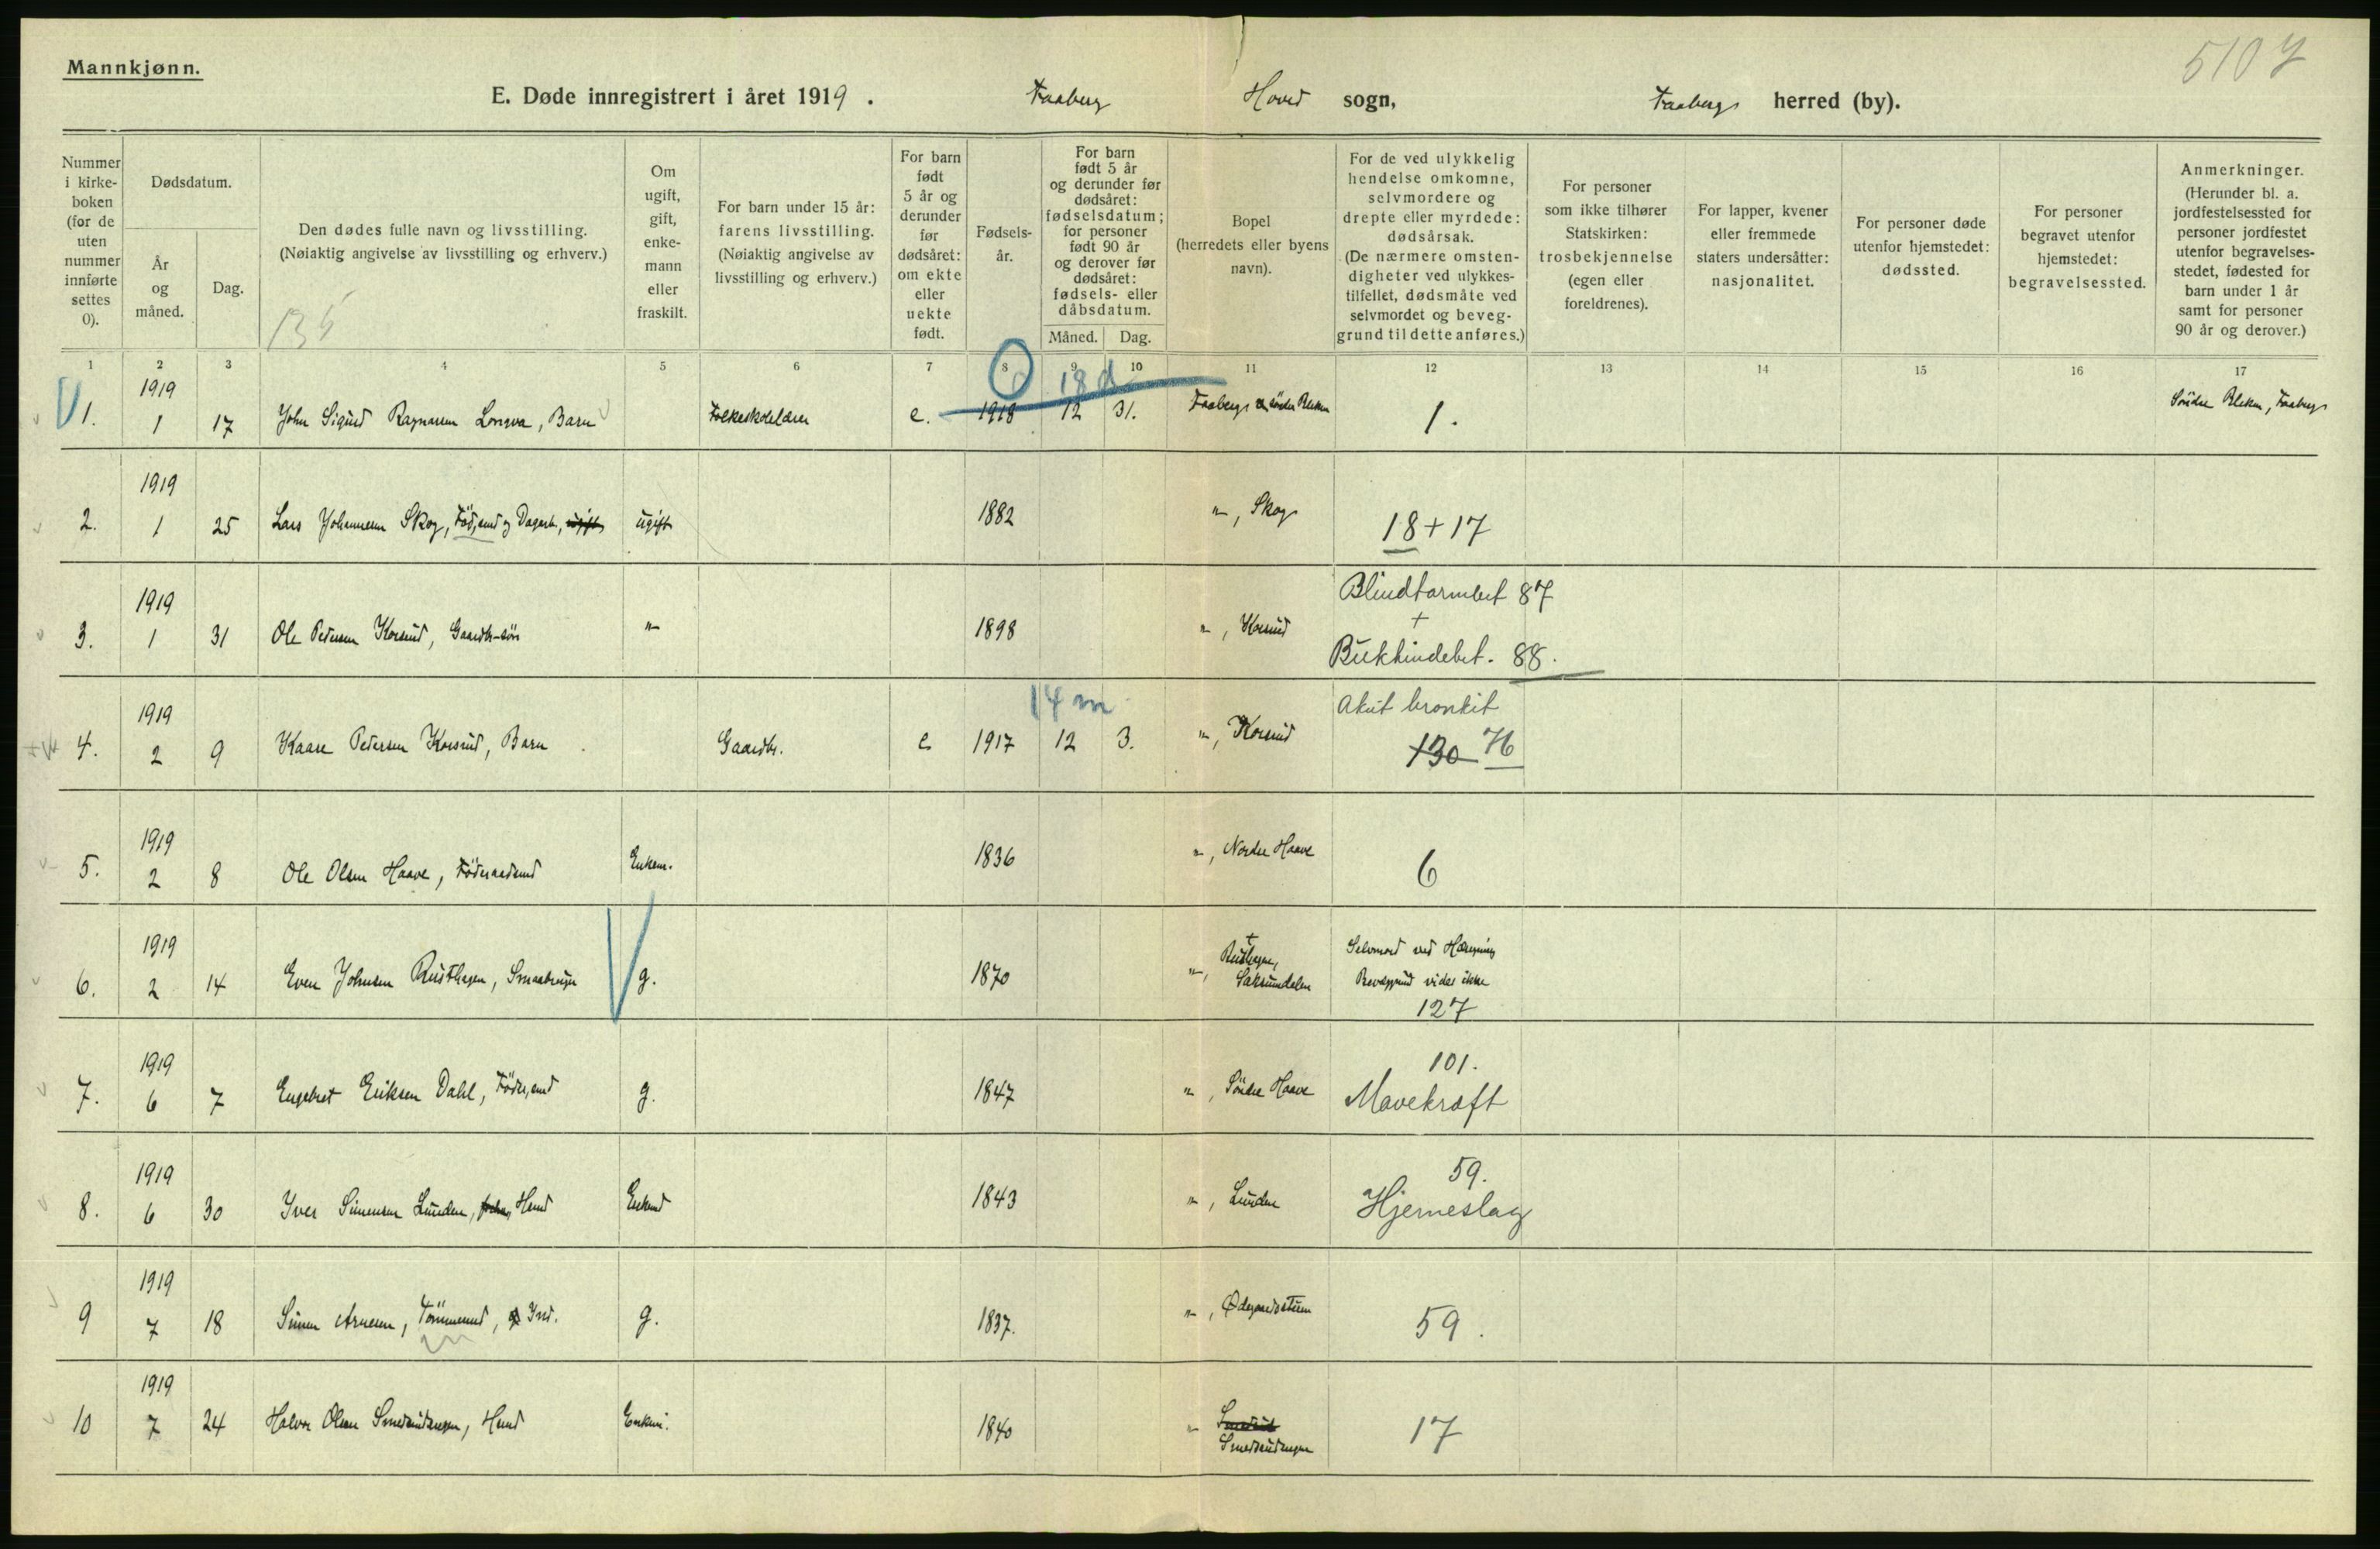 Mannkjønn.
5107
E. Døde innregistrert i året 1919 . Faaberg Hoved sogn, Faaberg herred (by).
Nummer i kirke- boken (for de uten nummer innførte settes 0).
Dødsdatum.
År og måned.
Dag.
Den dødes fulle navn og livsstilling.
(Nøiaktig angivelse av livsstilling og erhverv.)
135
Om ugift, gift, enke- mann eller fraskilt.
For barn under 15 år: farens livsstilling. (Nøiaktig angivelse av livsstilling og erhverv.)
For barn født 5 år og derunder før dødsåret: om ekte eller uekte født.
Fødsels- år.
For barn født 5 år og derunder før dødsåret: fødselsdatum; for personer født 90 år og derover før dødsåret: fødsels- eller dåbsdatum.
Måned. Dag.
Bopel (herredets eller byens navn).
For de ved ulykkelig hendelse omkomne, selvmordere og drepte eller myrdede: dødsårsak. (De nærmere omsten- digheter ved ulykkes- tilfellet, dødsmåte ved selvmordet og beveg- grund til dette anføres.)
For personer som ikke tilhører Statskirken: trosbekjennelse (egen eller foreldrenes).
For lapper, kvener eller fremmede staters undersåtter: nasjonalitet.
For personer døde utenfor hjemstedet: dødssted.
For personer begravet utenfor hjemstedet: begravelsessted.
Anmerkninger. (Herunder bl. a. jordfestelsessted for personer jordfestet utenfor begravelses- stedet, fødested for barn under 1 år samt for personer 90 år og derover.)
1 2 3 4 5 6 7 8 9 10 11 12 13 14 15 16 17
18 d
1919
1. 1 17 John Sigurd Ragnarsen Longva, Barn Folkeskolelærer e. 1918 12 31. Faaberg, Søndre Bleken 1. Søndre Bleken, Faaberg
1919
2. 1 25 Lars Johannesen Skog, Fødsmd og Dagarb., ugift ugift 1882 "–, Skog 18+17
1919
3. 1 31 Ole Pedersen Korsrud, Gaardbr-søn "– 1898 "–, Korsrud Blindtarmbet 87
+
Bukhindebet. 88.
1919 14 m Akut bronkit
4. 2 9 Kaare Pedersen Korsrud, Barn Gaardbr. e 1917 12 3. "–, Korsrud 130 76
1919
5. 2 8 Ole Olsen Haave, Føderaadsmd Enkem. 1836 "–, Nordre Haave 6
1919
6. 2 14 Even Johnsen Rusthagen, Smaabruger g. 1870 "–, Rusthagen, Saksumdalen Selvmord ved Hængning
Bevæggrund vides ikke
127
1919
7. 6 7 Engebret Eriksen Dahl, Fødsmd g. 1847 "–, Søndre Haave 101.
Mavekræft
1919
8. 6 30 Iver Simensen Lunden, Hmd Enkmd 1843 "–, Lunden 59.
Hjerneslag
1919
9 7 18 Simen Arnesen, Tømmermd, Ind. g. 1837. "–, Ødegaardsstuen 59.
1919
10 7 24 Halvor Olsen Smedrudengen, Hmd Enkm. 1840 "– Smedrud
Smedsrudengen 17